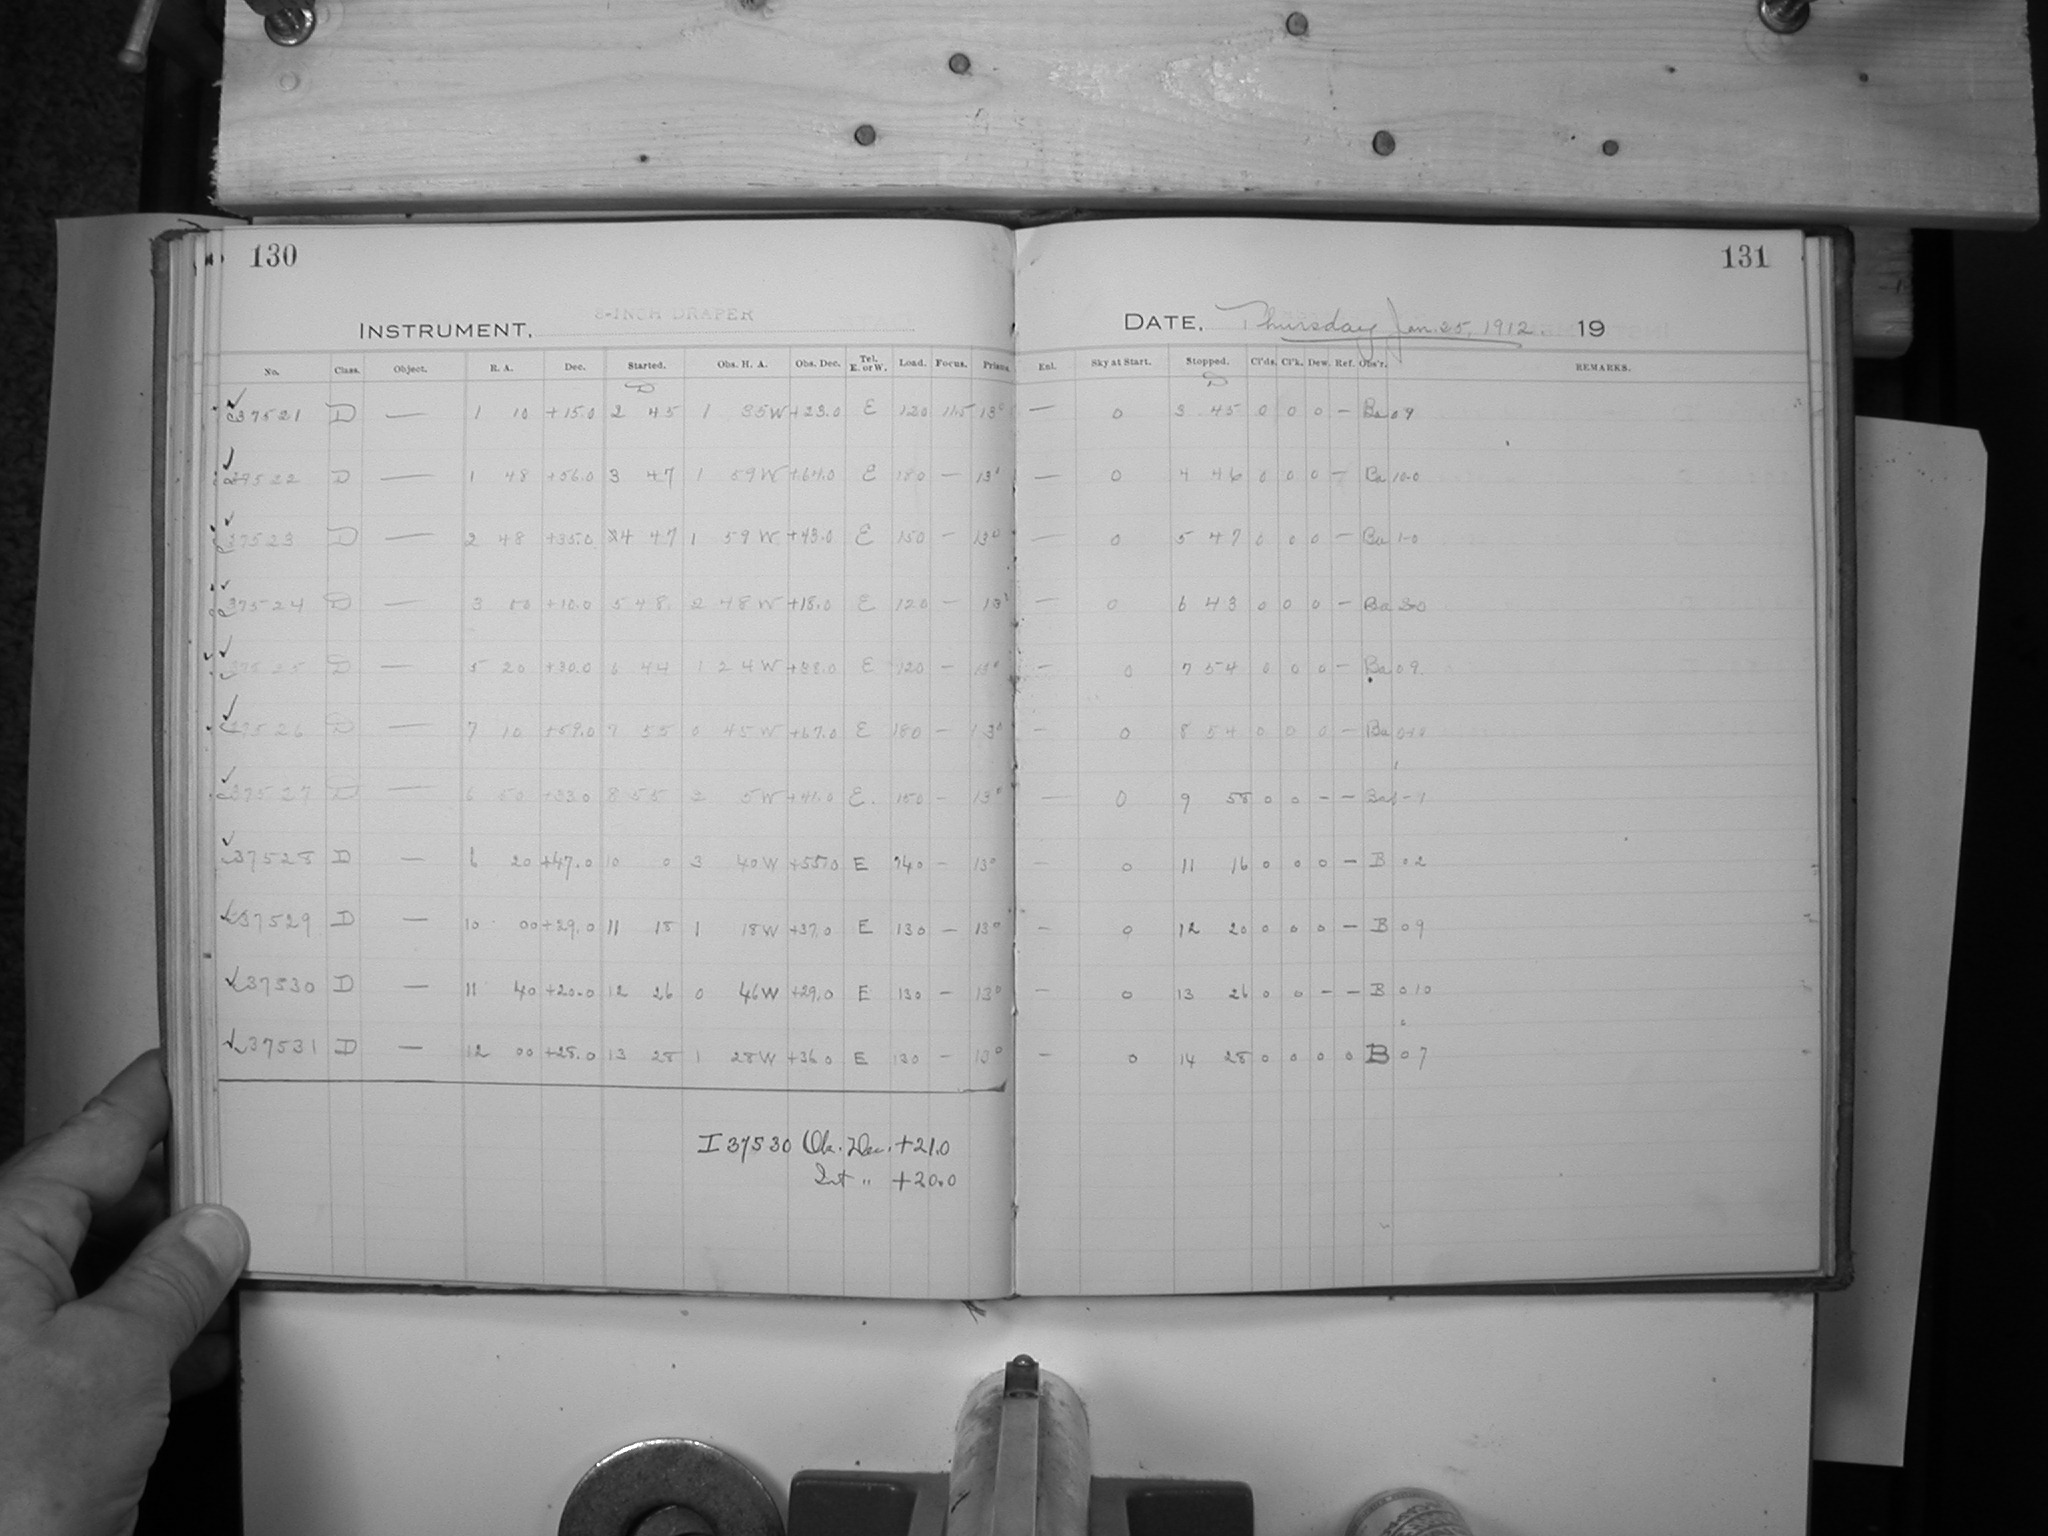 130
131
INSTRUMENT, 8-INCH DRAPER
DATE, Thursday Jan. 25, 1912. 19
No. Class. Object. R. A. Dec. Started. Obs. H. A. Obs. Dec. Tel. E. or W. Load. Focus. Prisms. Enl. Sky at Start. Stopped. Cl'ds. Cl'k. Dew. Ref. Obs'r. REMARKS.
37521 D — 1 10 +15.0 2 45 1 35W +23.0 E 120 11.5 13° — 0 3 45 0 0 0 — Ba 09
37522 D — 1 48 +56.0 3 47 1 59W +64.0 E 180 — 13° — 0 4 46 0 0 0 — Ba 10-0
37523 D — 2 48 +35.0 4 47 1 59W +43.0 E 150 — 13° — 0 5 47 0 0 0 — Ba 1-0
37524 D — 3 00 +10.0 5 48 2 48W +18.0 E 120 — 13° — 0 6 43 0 0 0 — Ba
37525 D — 5 20 +30.0 6 44 1 24W +38.0 E 120 — 13° — 0 7 54 0 0 0 — Ba 09
37526 D — 7 10 +59.0 7 55 0 45W +67.0 E 180 — 13° — 0 8 54 0 0 0 — Ba
37527 D — 6 50 +33.0 8 55 2 5W +41.0 E. 150 — 13° — 0 9 58 0 0 — — Ba
37528 D — 6 20 +47.0 10 0 3 40W +55.0 E 140 — 13° — 0 11 16 0 0 0 — B 02
37529 D — 10 00 +29.0 11 18 1 18W +37.0 E 130 — 13° — 0 12 20 0 0 0 — B 09
37530 D — 11 40 +20.0 12 26 0 46W +29.0 E 130 — 13° — 0 13 26 0 0 — — B 010
37531 D — 12 00 +28.0 13 28 1 28W +36.0 E 130 — 13° — 0 14 28 0 0 0 0 B 07
I 37530 Obs. Dec. +21.0
Int " +20.0